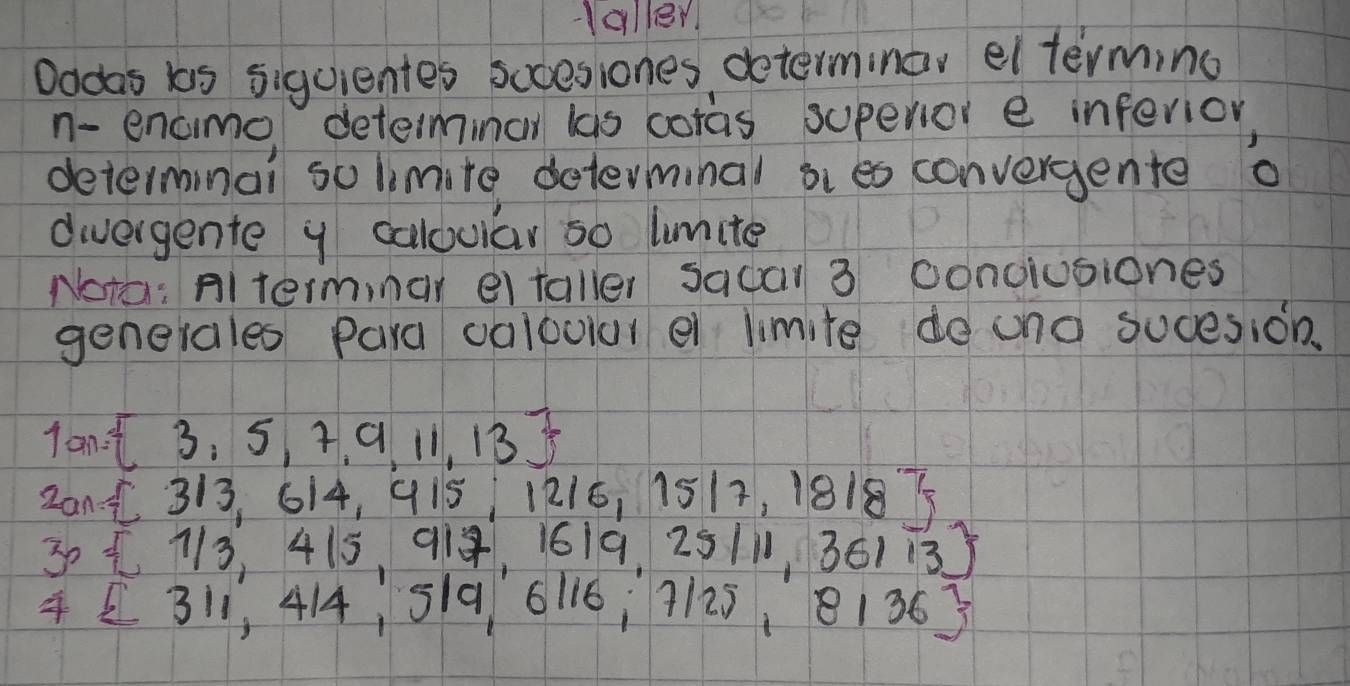 Taller.
Dadas las siguientes sucesiones, determinar el término
n-encimo, determinar las cotas superior e inferior,
determinar su limite, determinar si es convergente o
divergente y calcular so limite
Nota: Al terminar el taller sacar 3 conclusiones
generales para calcular el limite de una sucesión.
1 an={ 3, 5, 7, 9, 11, 13 }
2 an={ 3/3, 6/4, 9/5, 12/6, 15/7, 18/8 }
3 { 1/3, 4/5, 9/7, 16/9, 25/11, 36/13 }
4 { 3/1, 4/4, 5/9, 6/16, 7/25, 8/36 }